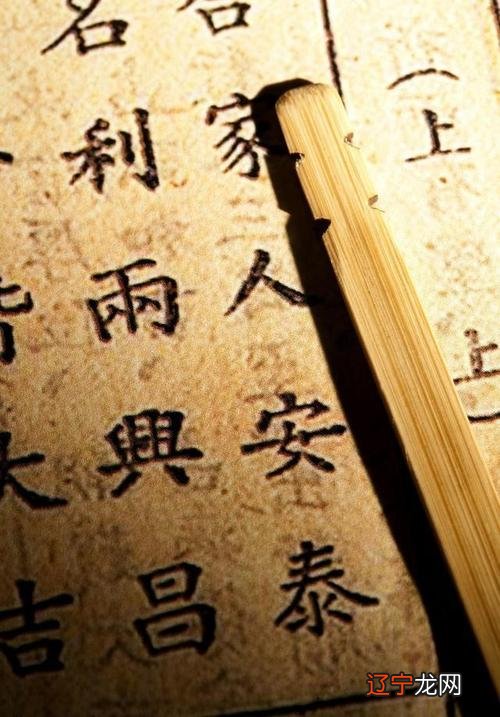 （上
上）
合家人安泰
名利兩興昌
皆大吉
辽宁龙网